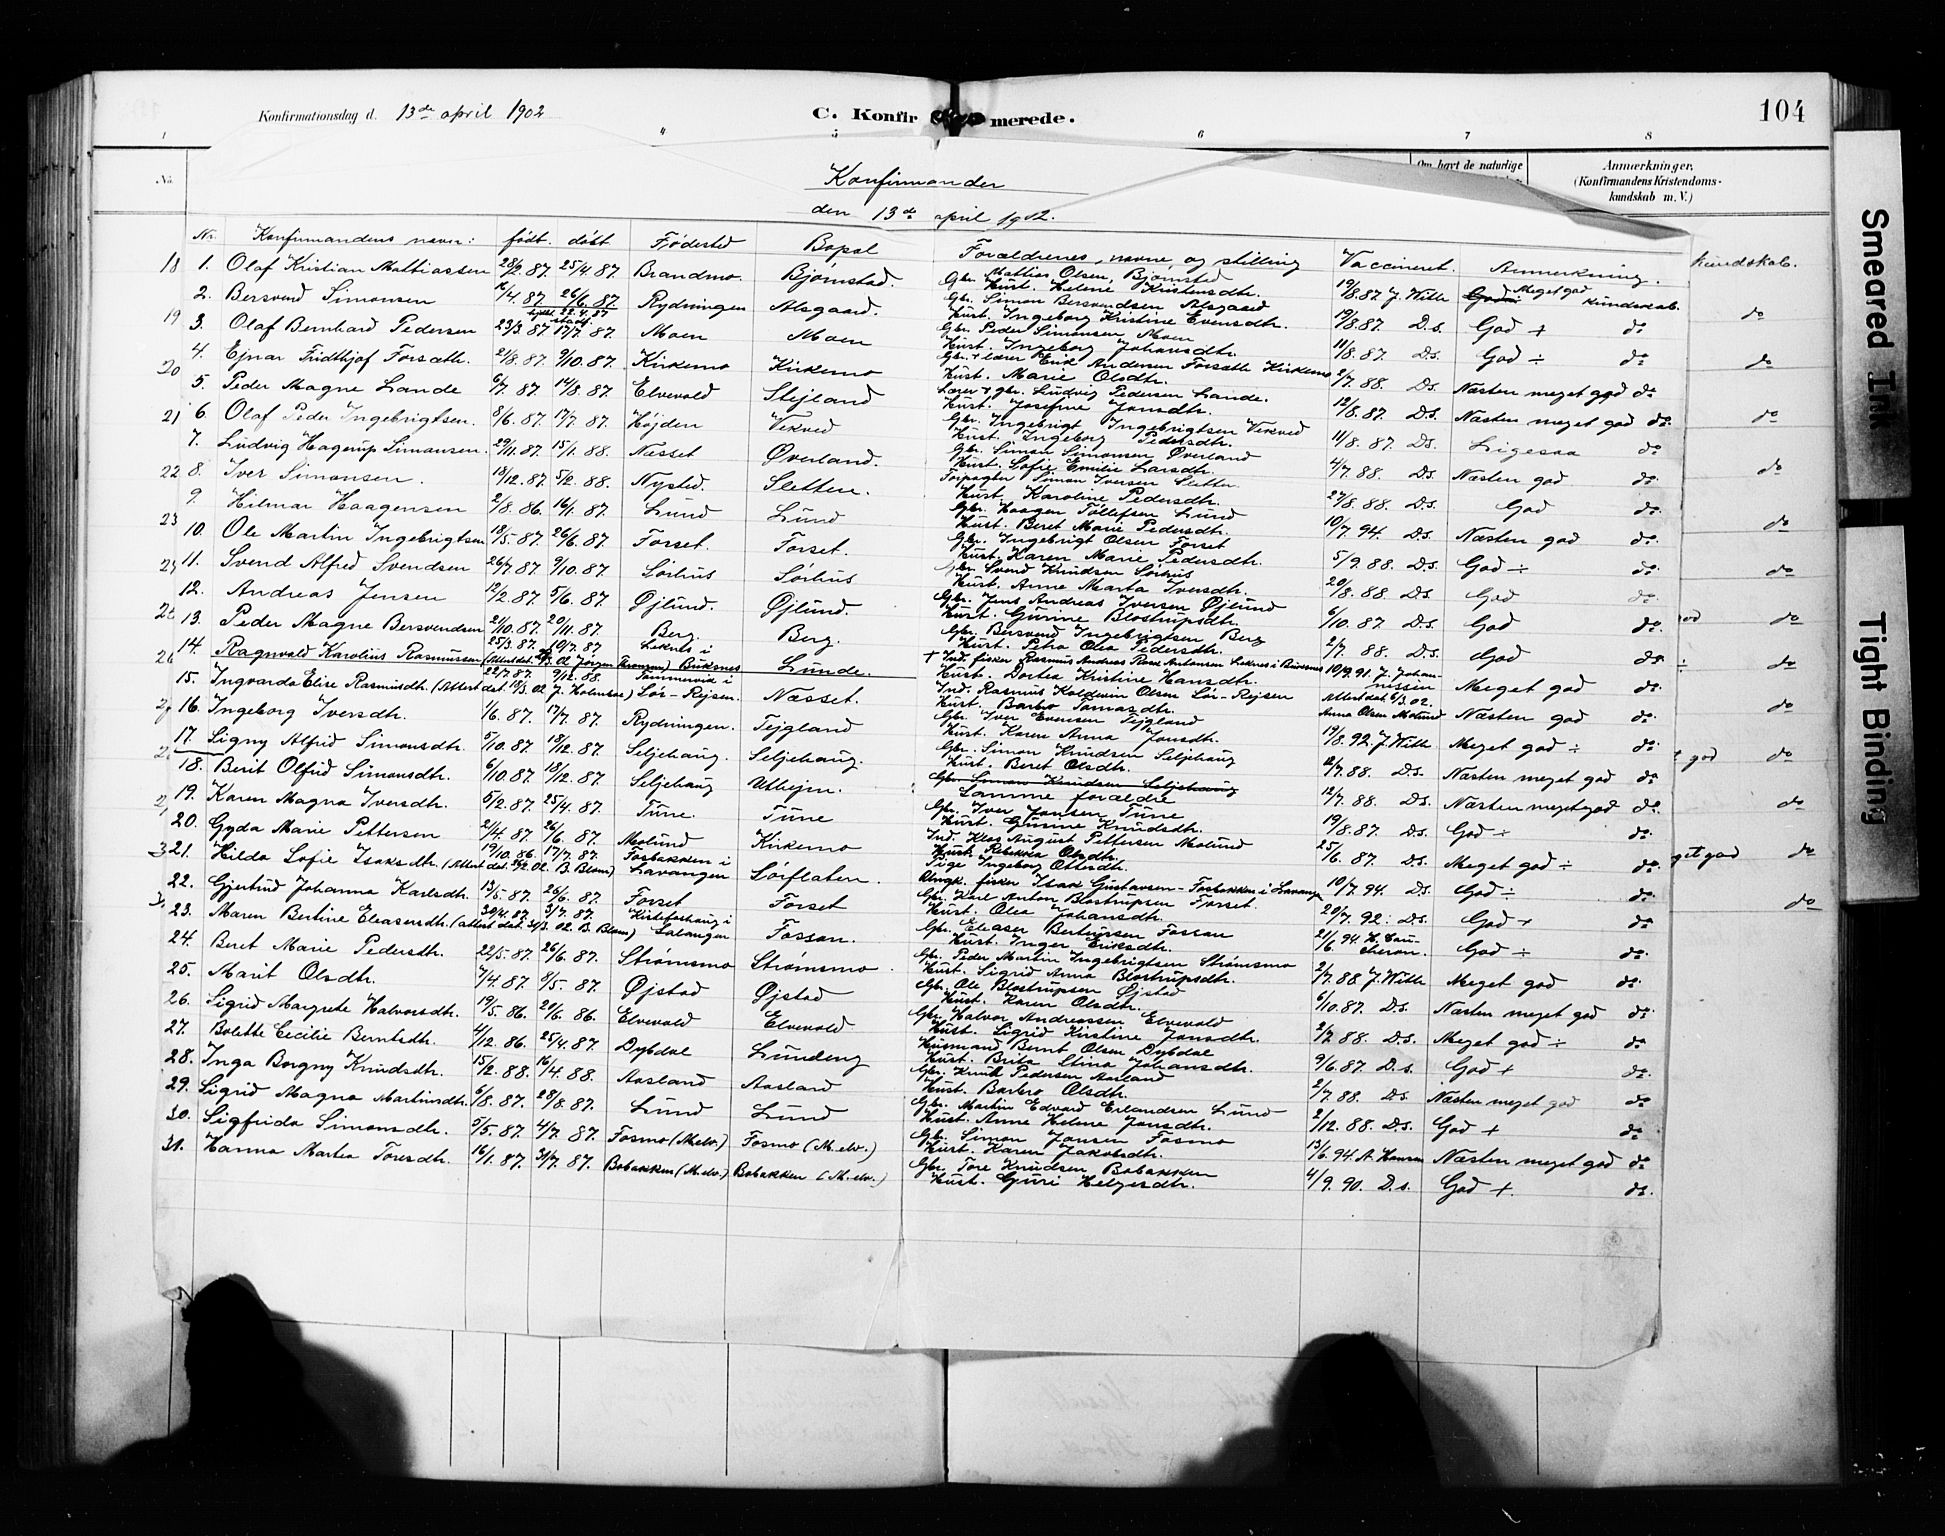 Konfirmationsdag d. 13de april 1902
C. Konfirmerede.
104
1 4 5 6 7 8
No.
Om havt de naturlige
Anmærkninger.
(Konfirmandens Kristendoms-
kundskab m. V.)
Konfirmander
den 13de april 1902.
Nr. Konfirmandens navn: født. døbt Fødested Bopæl Forældrenes, navne og stilling Vaccineret. Anmerkning.
1. Olaf Kristian Mathiassen 28/2. 87. 25/4 87. Brandmo. Bjørnstad. Gbr. Mathias Olsen, Bjørnstad Hust. Helene Kristensdtr. 19/8.87 J. Witth Meget god kundskab.
2. Bersvend Simonsen 16/4. 87. 26/6. 87. Rydningen Alsgaard. Gbr. Simon Bersvendsen Alsgaard Hust. Ingeborg Kristine Evensdtr. 19/8.87. D.s. God + do
3. Olaf Bernhard Pedersen 23/3 87 17/7. 87. Moen Moen Gbr. Peder Simonsen Moen Hust. Ingeborg Johansdtr. 11/8. 87. D.s. God ÷ do
4. Ejnar Fridthjof Forsæth. 21/8. 87. 9/10. 87. Kirkemo Kirkemo Gbr. + lærer Enid Andersen Forsæth Kirkemo Hust. Marie Olsdtr. 2/7. 88. D.s. Næsten meget god do
5. Peder Magne Lande 6/7. 87. 14/8. 87. Elvevold Stejland Lærer + gbr. Ludvig Pedersen Lande. Hust. Josefine Jonsdtr. 12/8. 87. D.s. Næsten meget god do.
6. Olaf Peder Ingebrigtsen. 8/6. 87. 17/7. 87. Højden Vekved Gbr. Ingebrigt Ingebrigtsen Vekved Hust. Ingeborg Pedersdtr. 11/8. 87. D.s. Ligesaa do
7. Ludvig Hagerup Simonsen. 29/11. 87. 15/1. 88. Næsset Øverland. Gbr. Simon Simonsen Øverland Hust. Sofie Emilie Larsdtr. 4/7. 88. D.s. Næsten god do.
8. Iver Simonsen. 18/12. 87. 5/2. 88. Nysted. Sletten. Forpagter Simon Iversen Sletten Hust. Karoline Pedersdtr. 27/8. 88. D.s. God do.
9. Hilmar Haagensen 2/8. 86. 16/1. 87. Lund Lund Gbr. Haagen Tollefsen Lund Hust. Beret Marie Pedersdtr. 10/7. 94. D.s. Næsten god do.
10. Ole Martin Ingebrigtsen 18/5. 87. 26/6. 87. Forset. Forset. Gbr. Ingebrigt Olsen Forset Hust. Karen Marie Pedersdtr. 5/9. 88. D.s. God ÷ do.
11. Svend Alfred Svendsen 26/7. 87. 9/10. 87. Sørhus Sørhus Gbr. Svend Knudsen Sørhus Hust. Anne Marta Iversdtr. 20/8. 88. D.s. God do:
12. Andreas Jensen 12/2. 87. 5/6. 87. Øjlund. Øjlund. Gbr. Jens Andreas Iversen Øjlund Hust. Gurine Blostrupsdtr. 6/10. 87. D.s. God do.
13. Peder Magne Bersvendsen 2/10. 87. 20/11. 87. Berg. Berg. Gbr. Bersvend Ingebrigtsen Berg Hust. Petra Olea Pedersdtr. 2/7. 88. D.s. God do.
14. Ragnvald Karolius Rasmussen 25/3. 87. 10/7. 87 Leknes i Buksnes Lunde. + Ind. fisker Rasmus Andreas Antonsen Leknes i Buksnes Hust. Dortea Kristine Hansdtr. 10/9. 91. J. Johannissen Meget god do.
15. Ingvarda Elise Rasmusdtr. (Attest dat. 18/3. 02 J. Holmboe) 22/7. 87. 9/12. 88. Sør-Rejsen. Næsset. Ind. Rasmus Kaldevin Olsen Sør-Rejsen Hust. Barbro Tomasdtr. Attest dat. 6/3. 02. Anna Olsen Molund Næsten god do.
16. Ingeborg Iversdtr. 1/6. 87. 17/7. 87. Rydningen. Tejgland Gbr. Iver Evensen Tejgland Hust. Karen Anna Jonsdtr. 19/8. 92. J. Witth Meget god ÷ do.
17. Signy Alfrid Simonsdtr. 5/10. 87. 18/12. 87. Seljehaug. Seljehaug. Gbr. Simon Knudsen Seljehaug Hust. Beret Olsdtr. 12/7. 88. D.s. Næsten meget god do.
18. Berit Olfrid Simonsdtr. 6/10. 87. 18/12. 87. Seljehaug Utheim. Gbr. Simon Knudsen Seljehaug Samme forældre 12/7. 88. D.s. Næsten meget god do.
19. Karen Magna Iversdtr. 5/2. 87. 25/4. 87. Tune. Tune Gbr. Iver Jonsen Tune Hust. Gurine Knudsdtr. 19/8. 87. D.s. God ÷ do.
20. Gyda Marie Pettersen 2/4. 87 26/6. 87. Molund Kirkemo Ind. Klas August Pettersen Molund Hust. Rebekka Olsdtr. 25/6. 87. D.s. Meget god ÷ do.
21. Hilda Sofie Isaksdtr. (Attest dat. 24/2. 02. B. Blom) 19/10. 86. 17/7. 87. Fosbakken i Lavangen Sørflaten. Pige Ingeborg Ottersdtr. Ungk. fisker Isak Gustavsen - Fosbakken i Lavangen 10/7. 94. D.s. God ÷ do.
22. Gjertrud Johanna Karlsdtr. 13/5. 87. 26/6. 87. Forset Forset Gbr. Karl Anton Blostrupsen Forset. Hust. Olea Johansdtr. 20/7. 92: D.s. God + do
23. Maren Bertine Eleasersdtr. (attest dat. 31/3. 02. B. Blom) 30/4. 87. 3/7. 87. Salangen Fossan. Gbr. Eleaser Bertheussen Fossan Hust. Inger Eriksdtr. 21/6. 94. God ÷ do.
24. Beret Marie Pedersdtr. 22/5. 87. 26/6. 87. Strømsmo Strømsmo Gbr. Peder Martin Ingebrigtsen Strømsmo Hust. Sigrid Anna Blostrupsdtr. 2/7. 88 J. Witth Meget god do.
25. Marit Olsdtr. 7/4. 87. 8/5. 87. Øjstad Øjstad Gbr. Ole Blostrupsen Øjstad Hust. Karen Olsdtr. 6/10. 87. D.s. Næsten meget god do.
26. Sigrid Margrete Halvorsdtr. 19/5. 86. 20/6. 86. Elvevold Elvevold Gbr. Halvor Andreassen Elvevold Hust. Sigrid Kirstine Jonsdtr. 2/7 88. D.s. Meget god ÷ do
27. Bolette Cecilie Berntsdtr. 4/12. 86. 25/4. 87. Dybdal Lundeng Husmand Bernt Olsen Dybdal Hust. Brita Stina Johansdtr. 9/6. 87. D.s. God + do.
28. Inga Borgny Knudsdtr. 15/2. 88. 16/4. 88. Aasland Aasland Gbr. Knut Pedersen Aasland Hust. Barbro Olsdtr. 2/7. 88. D.s. Næsten meget god do
29. Sigrid Magna Martinsdtr. 6/8. 87. 28/8. 87. Lund Lund Gbr. Martin Edvard Erlandsen Lund Hust. Anne Helene Jonsdtr. 2/12. 88. D.s. God + do
30. Sigfrida Simonsdtr. 9/5. 87. 4/7. 87. Fosmo (M.elv.) Fosmo (M.elv.) Gbr. Simon Jonsen Fosmo Hust. Karen Jakobsdtr. 13/6. 94. A. Hansen Næsten meget god do
31. Hanna Martea Toresdtr. 16/1. 87. 31/7. 87. Bobakken (M.elv.) Bobakken (M.elv.) Gbr. Tore Knudsen Bobakken Hust. Guri Helgesdtr. 4/9. 90. D.s. God + do.
18
19
20
21
22
23
26
kundskab.
do
do
do
do
do
do
do
do
do
god do
do
get god do
do
Smeared Ink
Tight Binding